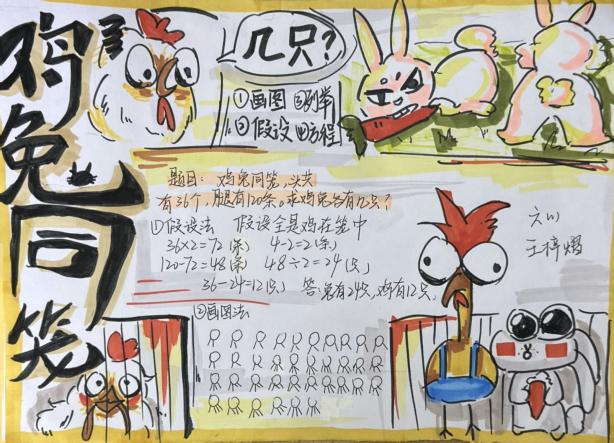 鸡兔同笼
几只?
①画图 ②列举
③假设 ④方程
题目: 鸡兔同笼,头共
有36个,腿有120条,求鸡兔各有几只?
①假设法 假设全是鸡在笼中
36×2=72(条) 4-2=2(条)
120-72=48(条) 48÷2=24(只)
36-24=12(只) 答:兔有24只,鸡有12只。
②画图法
六(1)
王梓熠